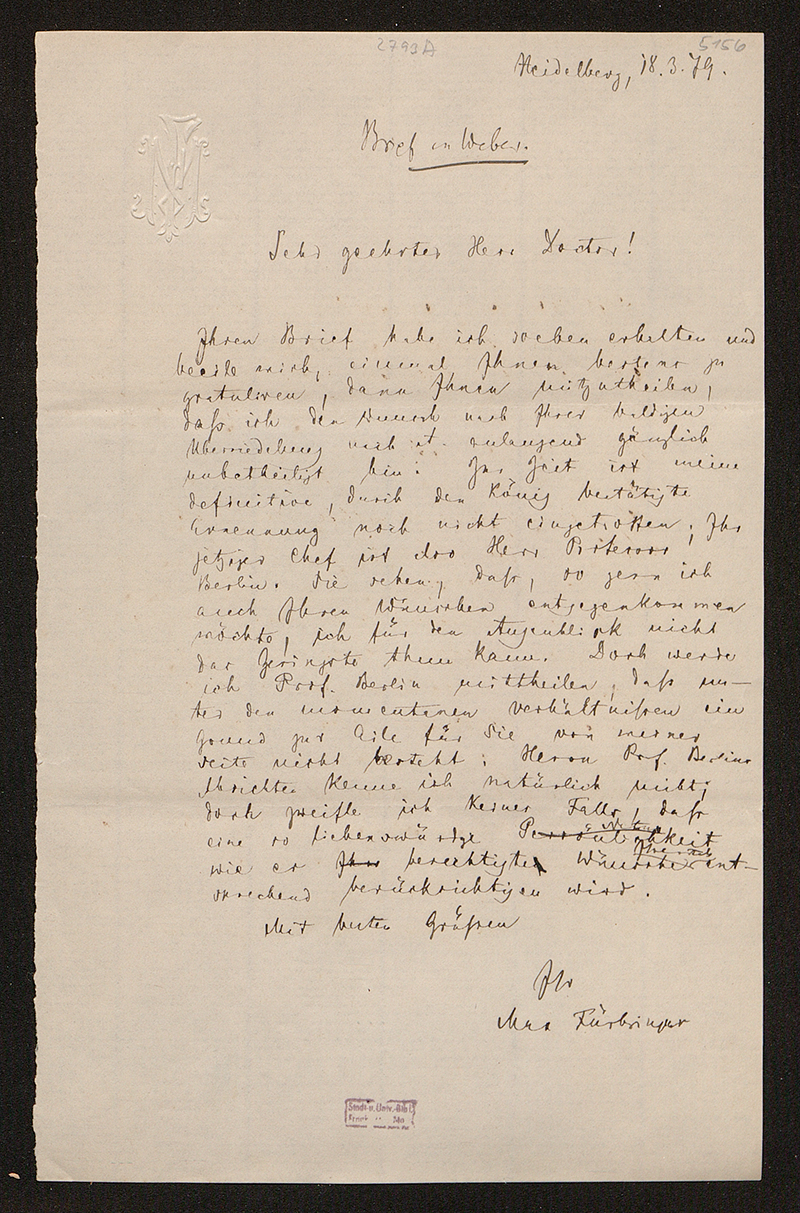 2793A
5156
Heidelberg, 18.3.79.
Brief an Weber.
Sehr geehrter Herr Doctor!
Ihren Brief habe ich soeben erhalten und
beeile mich, einmal Ihnen bestens zu
gratuliren, dann Ihnen mitzutheilen,
daß ich den Wunsch nach Ihrer baldigen
Übersiedelung anlangend gänzlich
unbetheiligt bin. Zur Zeit ist meine
definitive, durch den König bestätigte
Ernennung noch nicht eingetroffen; Ihr
jetziger Chef ist also Herr
Berlin. Sie sehen, daß, so gern ich
auch Ihren Wünschen entgegenkommen
möchte, ich für den Augenblick nicht
das Geringste thun kann. Doch werde
ich Prof. Berlin mittheilen, daß un-
ter den momentanen Verhältnißen ein
Grund zur Eile für Sie von meiner
Seite nicht besteht; Herrn Prof. Berlins
Absichten kenne ich natürlich nicht;
doch zweifle ich keines Falls, daß
eine so liebenswürdige Persönlichkeit
wie er Ihre berechtigten Wünsche ent-
sprechend berücksichtigen wird.
Mit besten Grüßen
Ihr
Max Fürbringer
Stadt- u. Univ.-Bibl.